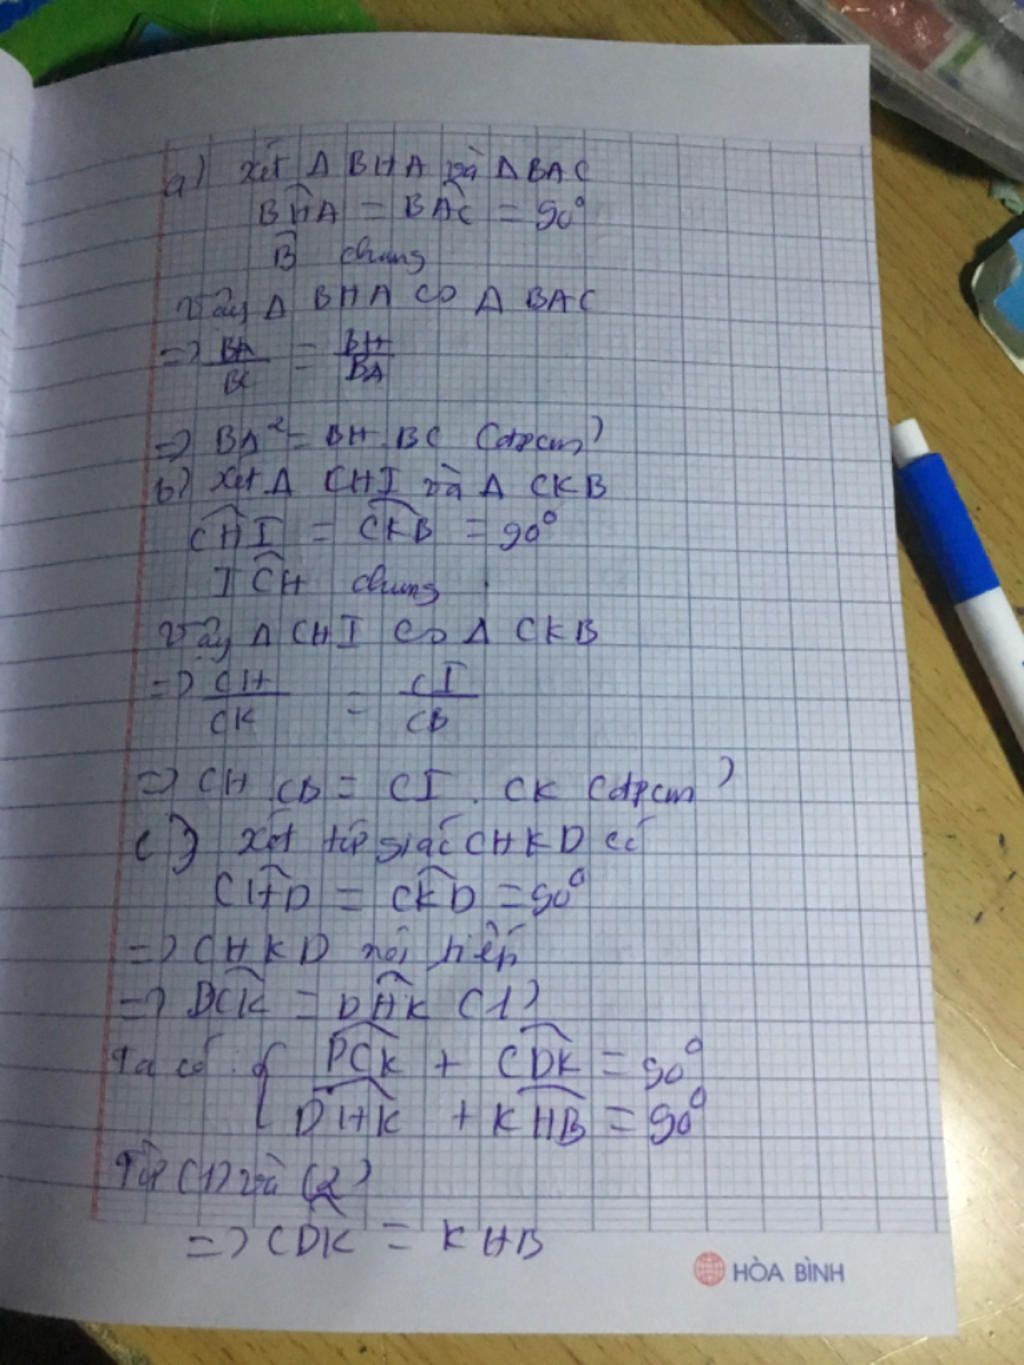 a) Xét Δ BHA và Δ BAC
BHA = BAC = 90°
B chung
Vậy Δ BHA ∽ Δ BAC
=> BA/BC = BH/BA
=> BA² = BH . BC (đpcm)
b) Xét Δ CHI và Δ CKB
CHI = CKB = 90°
ICH chung
Vậy Δ CHI ∽ Δ CKB
=> CH/CK = CI/CB
=> CH . CB = CI . CK (đpcm)
c) Xét tứ giác CHKD có
CHD = CKD = 90°
=> CHKD nội tiếp
=> DCK = DHK (1)
Ta có: { DCK + CDK = 90°
DHK + KHB = 90°
Từ (1) và (2)
=> CDK = KHB
HÒA BÌNH